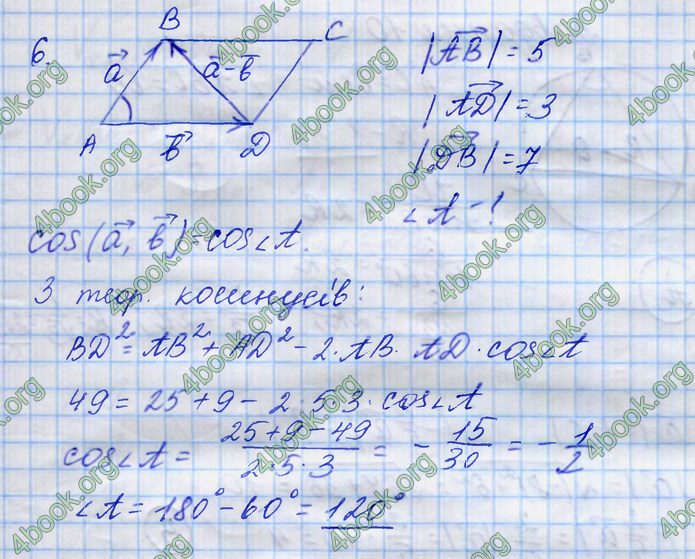 6.
B C
a⃗ a⃗-b⃗
A b⃗ D
|AB⃗| = 5
|AD⃗| = 3
|DB⃗| = 7
∠A - !
cos(a⃗, b⃗) = cos∠A.
З теор. косинусів:
BD² = AB² + AD² - 2·AB·AD·cos∠A
49 = 25 + 9 - 2·5·3·cos∠A
cos∠A = (25+9-49)/(2·5·3) = -15/30 = -1/2
∠A = 180° - 60° = 120°
4book.org